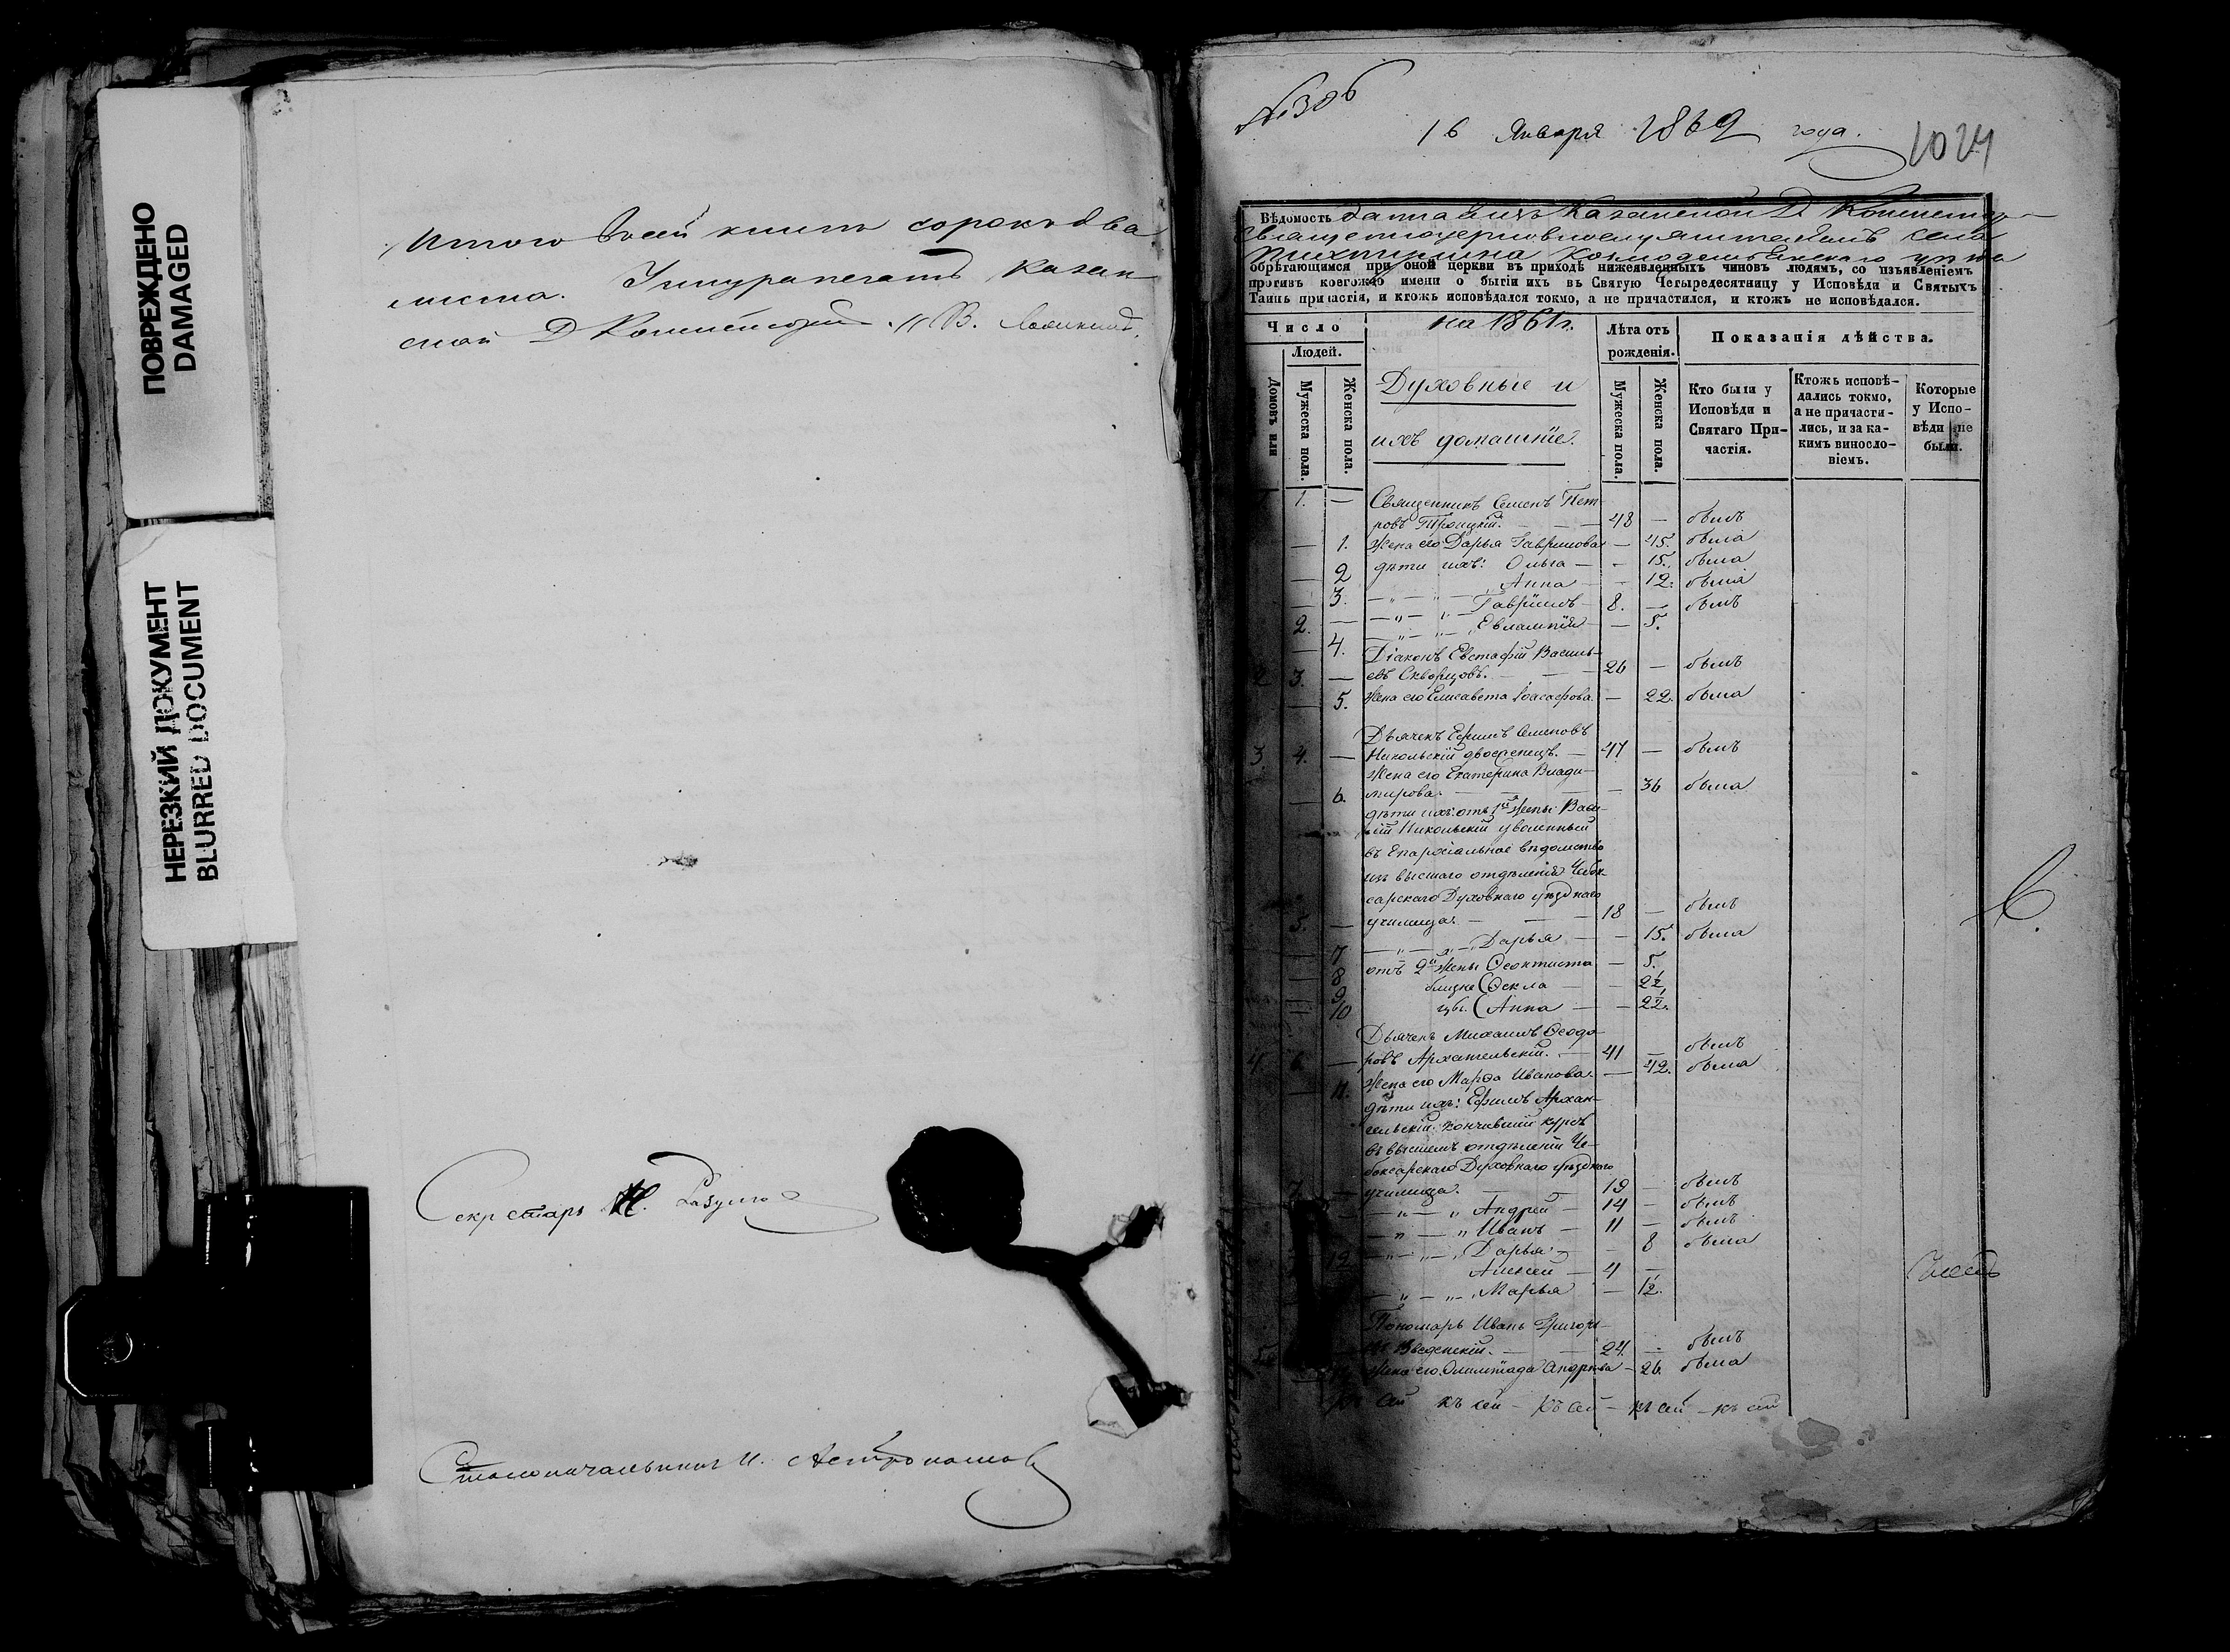 ПОВРЕЖДЕНО
DAMAGED
НЕРЕЗКИЙ ДОКУМЕНТ
BLURRED DOCUMENT
Итого всей книги сорокъ два
листа. Казан
ской Д Консисторіи
Секретарь Н. Разумов
Столоначальникъ И. Астрономов
№306
16 Января 1862 года.
1024
Вѣдомость Казанской Д Консистор
села
обрѣтающимся при оной церкви въ приходѣ нижеявленныхъ чиновъ людямъ, со изъявленіемъ
противъ коегождо имени о бытіи ихъ въ Святую Четыредесятницу у Исповѣди и Святыхъ
Таинъ причастія, и ктожъ исповѣдался токмо, а не причастился, и ктожъ не исповѣдался.
Число
на 1861 г.
Лѣта отъ рожденія.
Показанія дѣйства.
Людей.
Домовъ или
Мужеска пола.
Женска пола.
Духовные и
ихъ домашніе.
Мужеска пола.
Женска пола.
Кто были у Исповѣди и Святаго Причастія.
Ктожъ исповѣдались токмо, а не причастились, и за какимъ винословіемъ.
Которые у Исповѣди не были.
1. — Священникъ Семенъ Пет-
ровъ Троицкій. — 48 — былъ
— 1. Жена его Дарья Гаврилова — 45. была
— 2 дѣти ихъ: Ольга — 15. была
— 3. Анна — 12. была
2. — Гавріилъ 8. — былъ
— 4. Евлампія — 5.
Діаконъ Евстафій Василь-
2 3. — евъ Скворцовъ. — 26 — былъ
— 5. Жена его Елисавета Іоасафова. — 22. была
Дьячекъ Ефимъ Семеновъ
3. 4. — Никольскій двоеженецъ. — 47 — былъ
Жена его Екатерина Влади-
— 6. мирова. — 36 была
дѣти ихъ: отъ 1й жены Васи-
лій Никольскій уволенный
въ Епархіальное вѣдомство
изъ высшаго отдѣленія Чебок
сарскаго Духовнаго уѣзднаго
5. — училища. — 18 — былъ
— 7 Дарья — 15. была
— 8 отъ 2й жены Ѳеоктиста — 5.
— 9 близне (Ѳекла — 2½
— 10 цы. (Анна — 2½.
Дьячекъ Михаилъ Ѳеодо-
4 6. — ровъ Архангельскій. — 41 — былъ
— 11. Жена его Марѳа Иванова. — 42. была
дѣти ихъ: Ефимъ Архан-
гельскій кончившій курсъ
въ высшемъ отдѣленіи Че-
боксарскаго Духовнаго уѣзднаго
7. — училища. — 19 — былъ
Андрей — 14 — былъ
Иванъ — 11 — былъ
12 Дарья — 8 была
Алексей — 4 —
Марья — ½.
Пономарь Иванъ Григорь-
5. Введенскій. — 24. — былъ
Жена его Олимпіада Андреева — 26. была
къ сей къ сей — къ сей — къ сей — къ сей